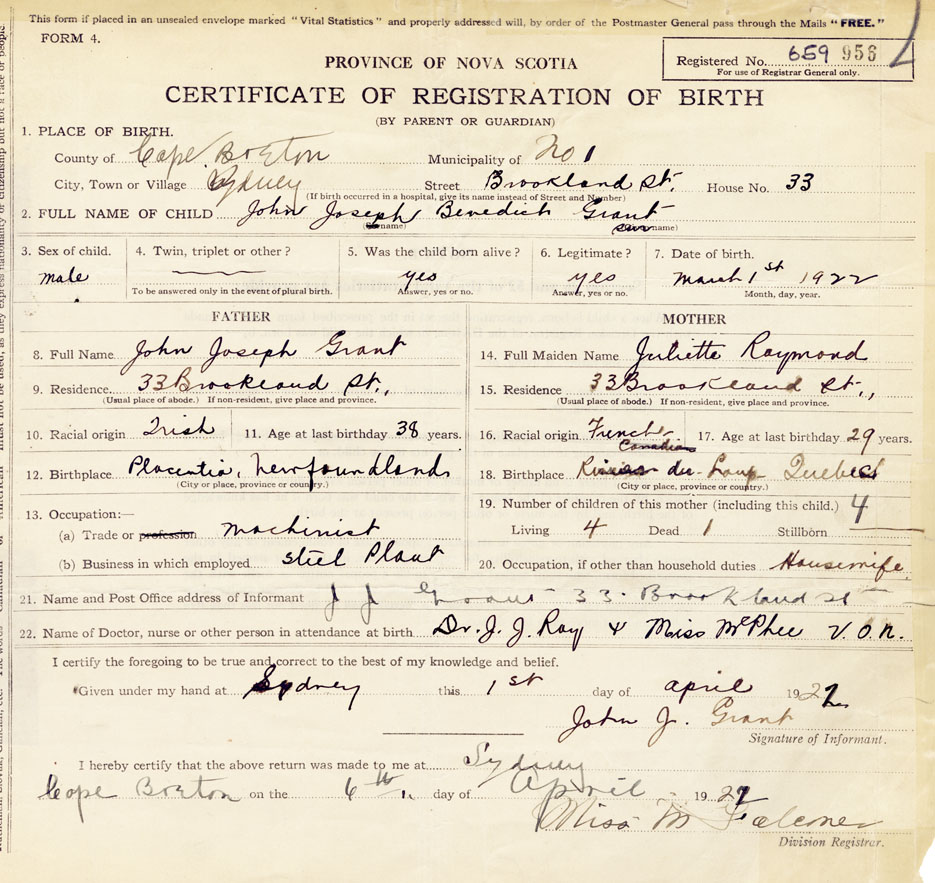 This form if placed in an unsealed envelope marked "Vital Statistics" and properly addressed will, by order of the Postmaster General pass through the Mails "FREE."
FORM 4.
Registered No. 659 956
For use of Registrar General only.
PROVINCE OF NOVA SCOTIA
CERTIFICATE OF REGISTRATION OF BIRTH
(BY PARENT OR GUARDIAN)
1. PLACE OF BIRTH.
County of Cape Breton Municipality of No 1
City, Town or Village Sydney Street Brookland St. House No. 33
(If birth occurred in a hospital, give its name instead of Street and Number)
2. FULL NAME OF CHILD John Joseph Benedict Grant
3. Sex of child. 4. Twin, triplet or other? 5. Was the child born alive? 6. Legitimate? 7. Date of birth.
male yes yes March 1st 1922
To be answered only in the event of plural birth. Answer, yes or no. Answer, yes or no. Month, day, year.
FATHER MOTHER
8. Full Name John Joseph Grant 14. Full Maiden Name Juliette Raymond
9. Residence 33 Brookland St., 15. Residence 33 Brookland St.,
(Usual place of abode.) If non-resident, give place and province. (Usual place of abode.) If non-resident, give place and province.
10. Racial origin Irish 11. Age at last birthday 38 years. 16. Racial origin French Canadian 17. Age at last birthday 29 years.
12. Birthplace Placentia, Newfoundland 18. Birthplace du Loup Quebec
(City or place, province or country.) (City or place, province or country.)
13. Occupation:— 19. Number of children of this mother (including this child.) 4
(a) Trade or profession machinist Living 4 Dead 1 Stillborn
(b) Business in which employed Steel Plant 20. Occupation, if other than household duties Housewife
21. Name and Post Office address of Informant J J Grant 33 Brookland St
22. Name of Doctor, nurse or other person in attendance at birth Dr. J. J. Roy & Miss McPhee V.O.N.
I certify the foregoing to be true and correct to the best of my knowledge and belief.
Given under my hand at Sydney this 1st day of April 192
John J. Grant
Signature of Informant.
I hereby certify that the above return was made to me at Sydney
Cape Breton on the 6th day of April 192
Miss M Falconer
Division Registrar.